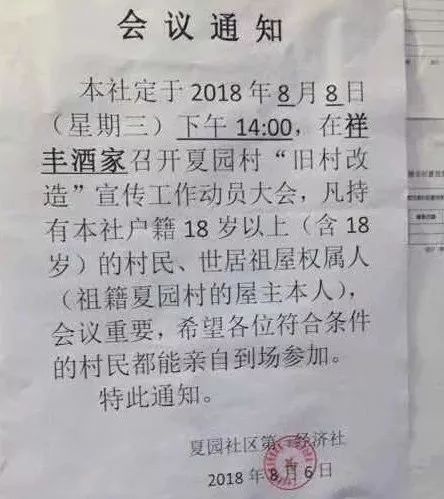 会议通知
本社定于 2018 年 8 月 8 日
（星期三）下午 14:00，在祥
丰酒家召开夏园村“旧村改
造”宣传工作动员大会，凡持
有本社户籍 18 岁以上（含 18
岁）的村民、世居祖屋权属人
（祖籍夏园村的屋主本人），
会议重要，希望各位符合条件
的村民都能亲自到场参加。
特此通知。
夏园社区第一经济社
2018 年 8 月 6 日